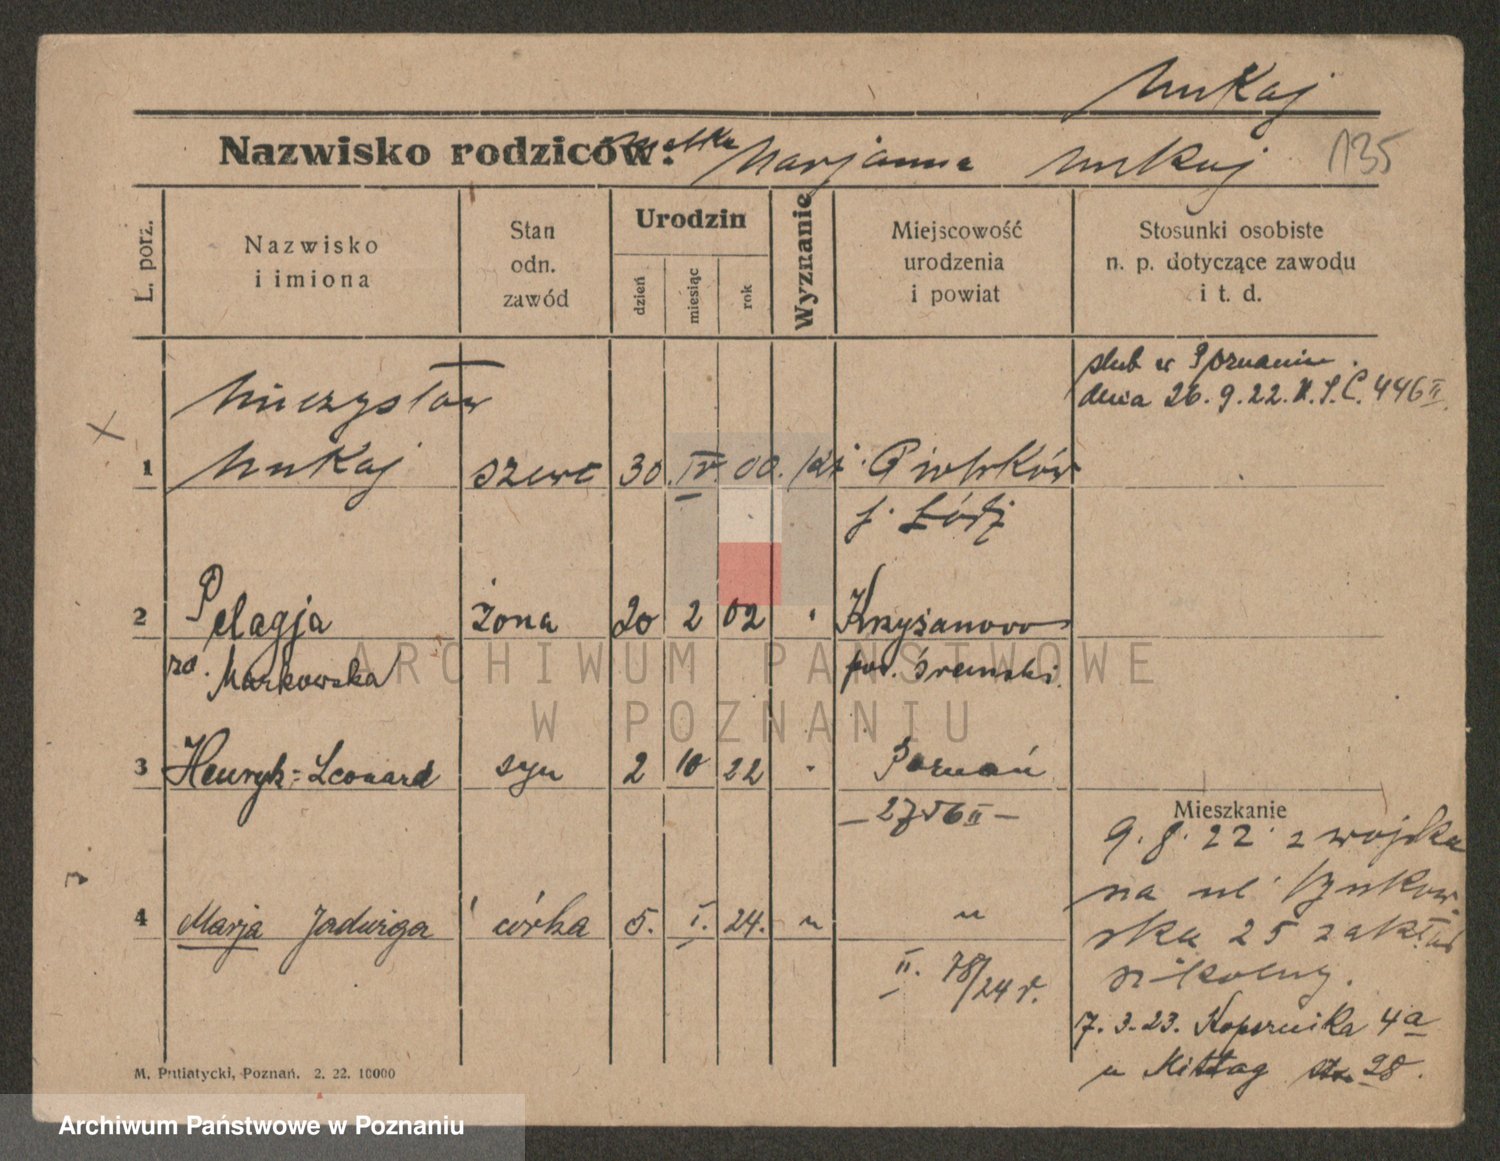 Mukaj
Nazwisko rodziców: matka Marjanna Mukaj
135
L. porz.
Nazwisko
i imiona
Stan
odn.
zawód
Urodzin
dzień
miesiąc
rok
Wyznanie
Miejscowość
urodzenia
i powiat
Stosunki osobiste
n. p. dotyczące zawodu
i t. d.
ślub w Poznaniu
dnia 26.9.22. U.S.C. 446 II
Mieczysław
1 Mukaj szewc 30. IV. 00. kat. Piotrków
Łódź
2 Pelagja żona 20 2 02 " Krzyżanowo
ro. Markowska pow. Śremski
3 Henryk-Leonard syn 2 10 22 " Poznań
– 2756 II –
4 Marja Jadwiga córka 5. I. 24. " "
II. 78/24 r.
Mieszkanie
9.8.22 z wojska
na ul.
25 zakład
7.3.23. Kopernika 4a
u Mittag 28.
M. Putiatycki, Poznań. 2. 22. 10000
ARCHIWUM PAŃSTWOWE
W POZNANIU
Archiwum Państwowe w Poznaniu